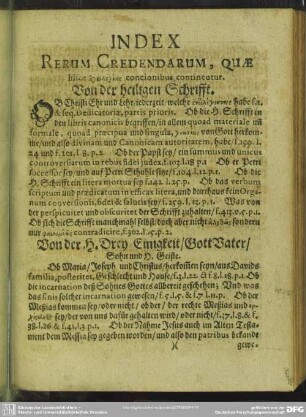 INDEX
RERUM CREDENDARUM, QUÆ
concionibus continentur.
Von der heiligen Schrifft.
OB Christi Ehr und Lehr jederzeit/ welche habe f.1.
& seq. Dedicatoriæ, partis prioris. Ob die H. Schrifft in
den libris canonicis begriffen/ in allem quoad materiale und
formale, quoad præcipua und singula, von Gott herkom-
me/ und also divinam und Canonicam autoritatem, habe/ f.199. l.
24 und f.121. l.8. p.2. Ob der Papst sey/ ein summus und unicus
controversiarum in rebus fidei judex f.103. l.18 p.1 Ob er Petri
successor sey/ und auf Petri Sthule sitze/ f.104. l.12. p.1. Ob die
H. Schrifft ein litera mortua sey f.142. l.9. p.2. Ob das verbum
scriptum und prædicatum in efficax litera, und durchaus kein Orga-
num conversionis, fidei & salutis sey/ f.251. l.13. p.1. Was von
der perspicuitet und obscuritet der Schrifft zuhalten/ f.415. p.1.
Ob sich die Schrifft manchmahl selbst/ doch aber nicht sondern
nur contradicire, f.302. l.5. p.2.
Von der H. Drey Einigkeit/ Gott Vater/
Sohn und H. Geiste.
Ob Maria/ Joseph und Christus herkommen seyn/ aus Davids
familia, posteritet, Geschlecht und Hause/ f.13. l.12. & f.8. l.18. p.1. Ob
die incarnation deß Sohnes Gottes allbereit geschehen; Und was
das sins solcher incarnation gewesen/
Messias kommen sey/ oder nicht/ ob der/ der rechte Messias und
sey/ der von uns dafür gehalten wird/ oder nicht/ f.17. l.8. & f.
38. l.26 & f.41. l.3 p.1. Ob der Nahme Jesus auch im Alten Testa-
ment dem Messia sey gegeben worden/ und also den patribus bekandt
gewe-